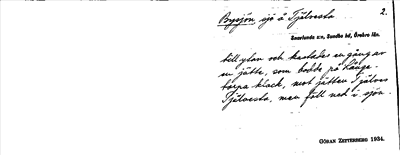 Bysjön sjö å Tjälvesta 2.
Snavlunda s:n, Sundbo hd, Örebro län.
till ytan och kastades en gång av
en jätte, som bodde på Långe-
torpa klack, mot jätten Tjälves
Tjälvesta, men föll ned i sjön.
GÖRAN ZETTERBERG 1934.